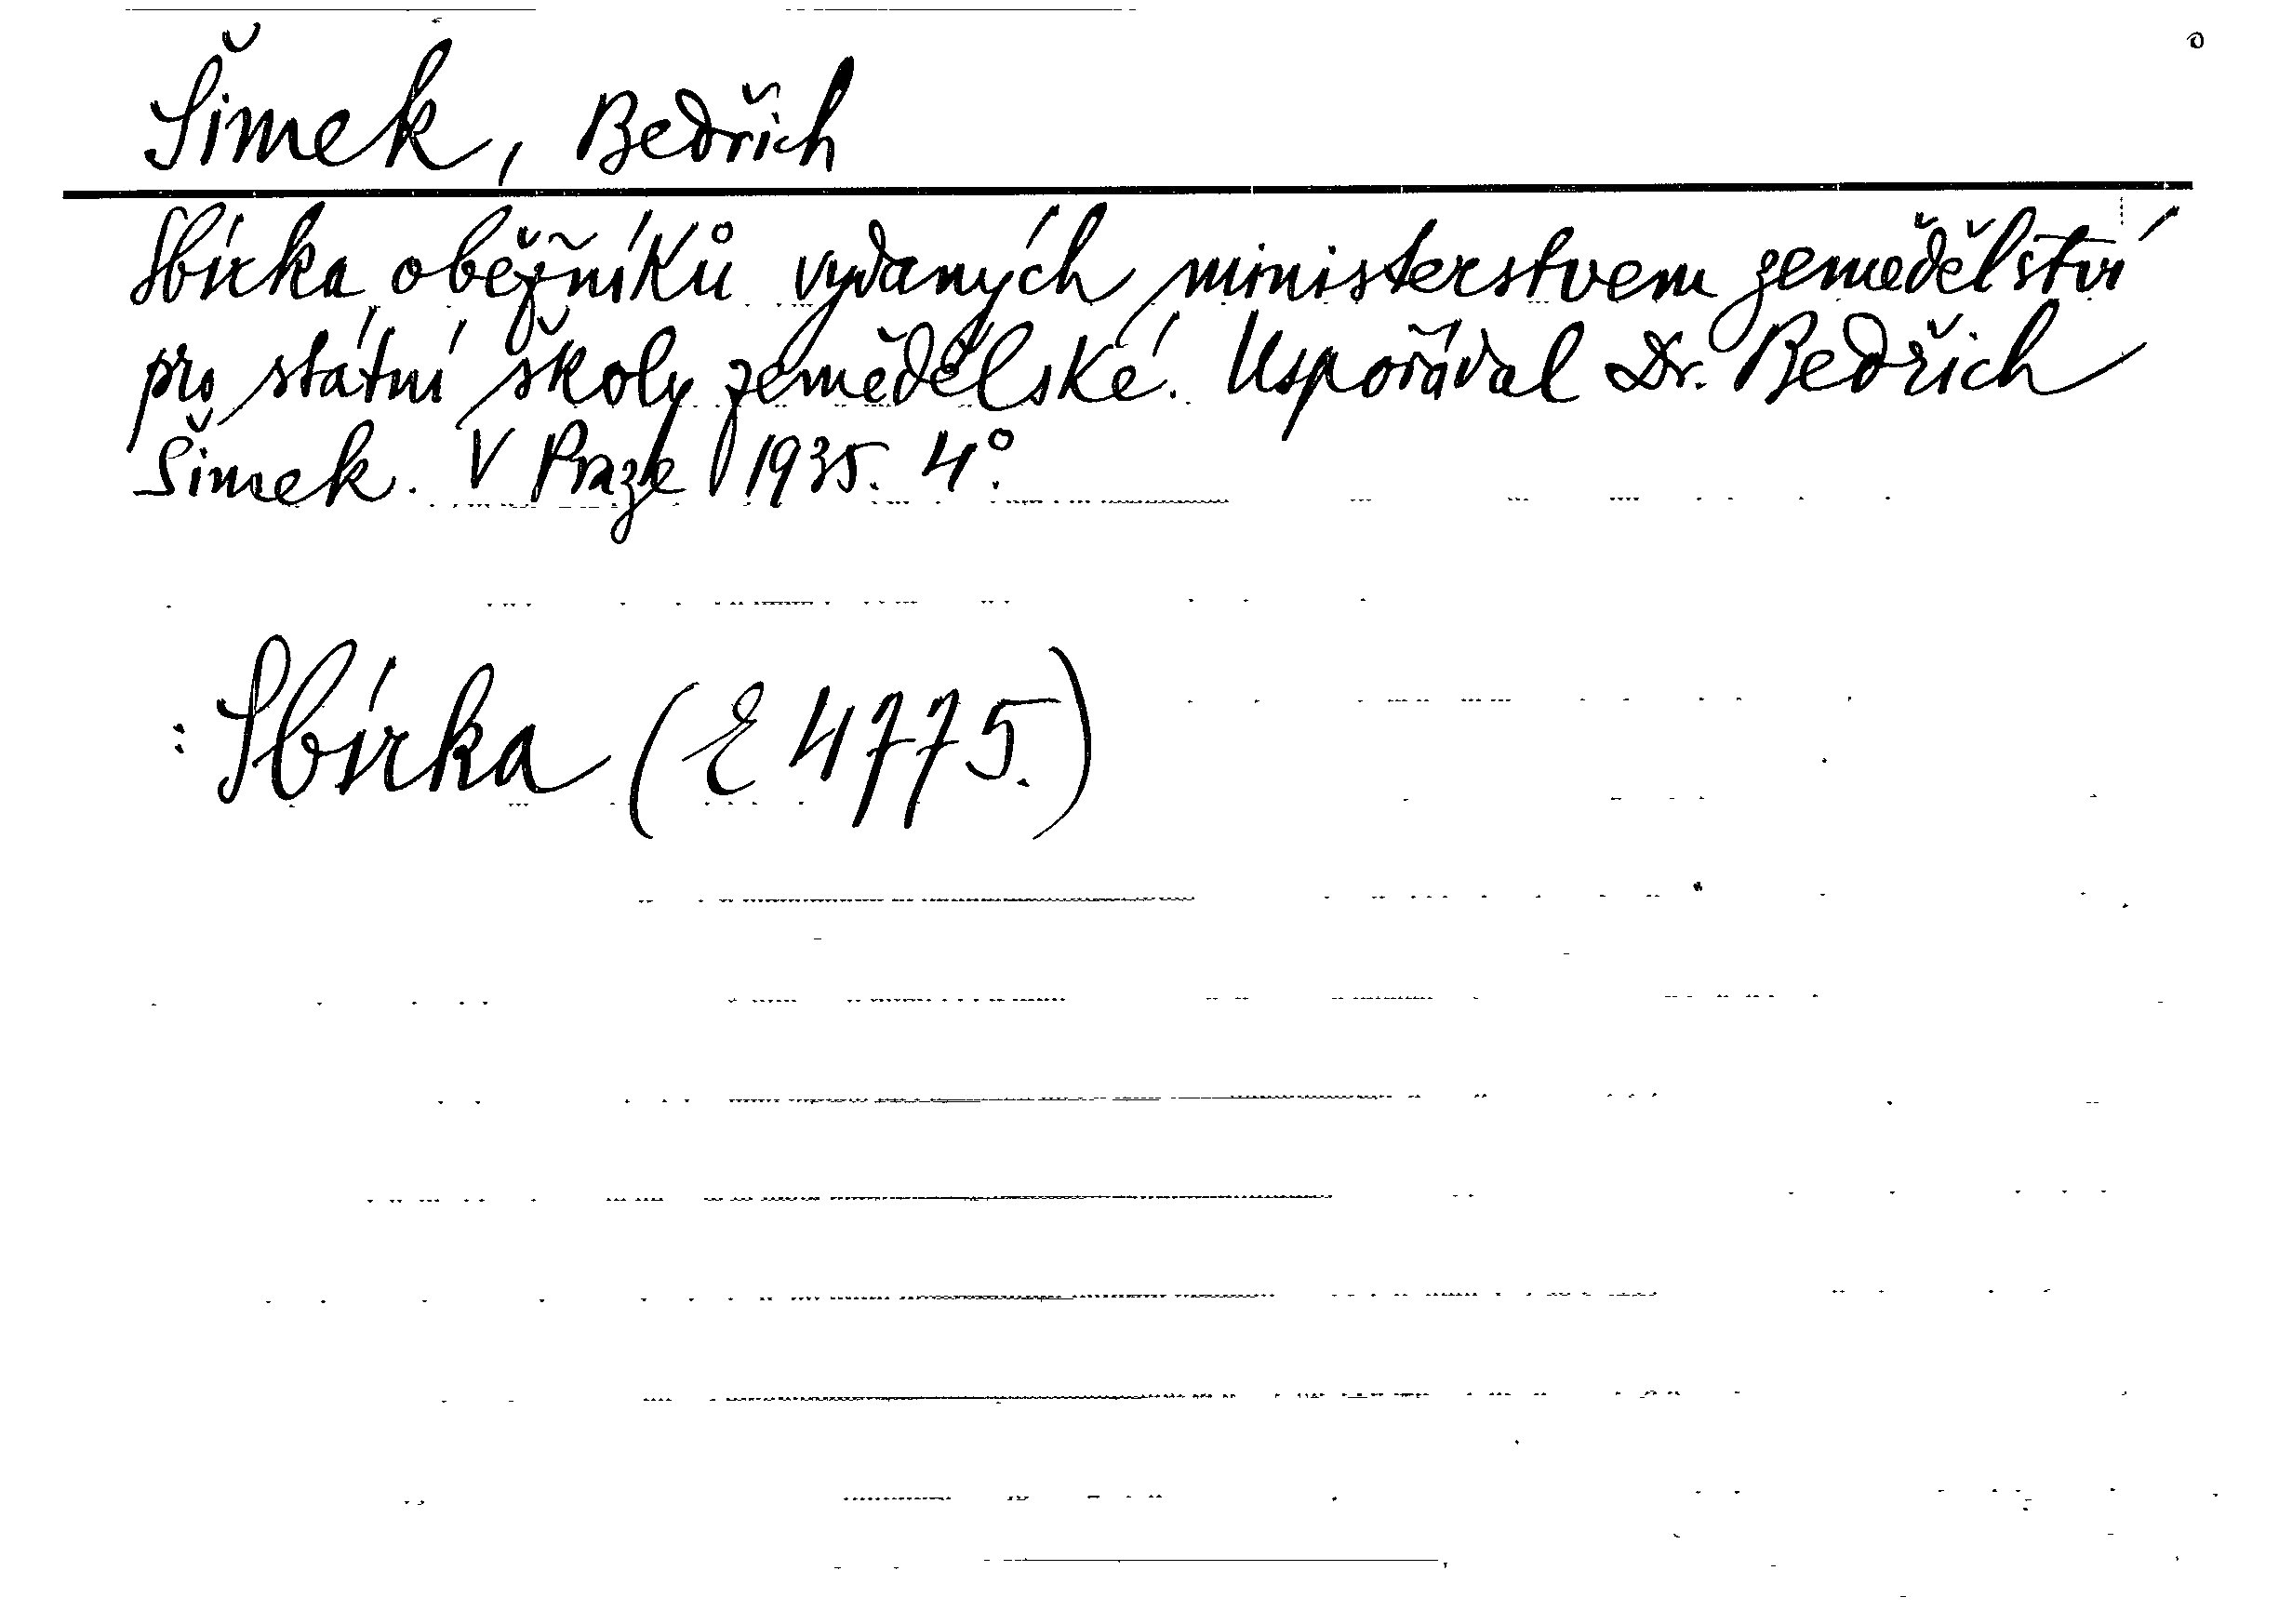 Šimek, Bedřich
Sbírka oběžníků vydaných ministerstvem zemědělství
pro státní školy zemědělské. Uspořádal Dr. Bedřich
Šimek. V Praze 1935. 4°.
: Sbírka (E 4775.)